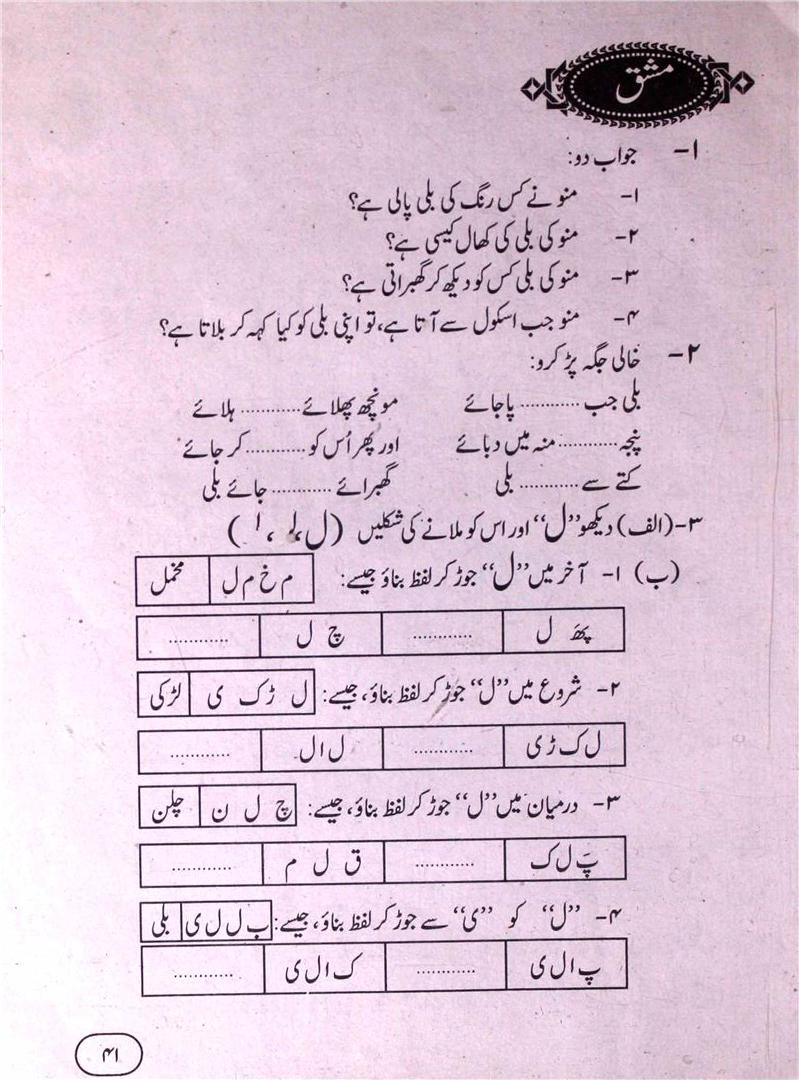 مشق
۱- جواب دو:
۱- منو نے کس رنگ کی بلی پالی ہے؟
۲- منو کی بلی کی کھال کیسی ہے؟
۳- منو کی بلی کس کو دیکھ کر گھبراتی ہے؟
۴- منو جب اسکول سے آتا ہے، تو اپنی بلی کو کیا کہہ کر بلاتا ہے؟
۲- خالی جگہ پُر کرو:
بلی جب ............ پا جائے مونچھ پھلائے ............ ہلائے
پنجہ ............ منہ میں دبائے اور پھر اُس کو ............ کر جائے
کتے سے ............ بلی گھبرائے ............ جائے بلی
۳- (الف) دیکھو ”ل“ اور اس کو ملانے کی شکلیں (ل، لـ، ا)
(ب) ۱- آخر میں ”ل“ جوڑ کر لفظ بناؤ جیسے: م خ م ل مخمل
پھَ ل ............ چ ل ............
۲- شروع میں ”ل“ جوڑ کر لفظ بناؤ، جیسے: ل ڑ ک ی لڑکی
ل ک ڑ ی ............ ل ا ل ............
۳- درمیان میں ”ل“ جوڑ کر لفظ بناؤ، جیسے: چ ل ن چلن
پَ ل ک ............ ق ل م ............
۴- ”ل“ کو ”ی“ سے جوڑ کر لفظ بناؤ، جیسے: ب ل ل ی بلی
پ ا ل ی ............ ک ا ل ی ............
۴۱